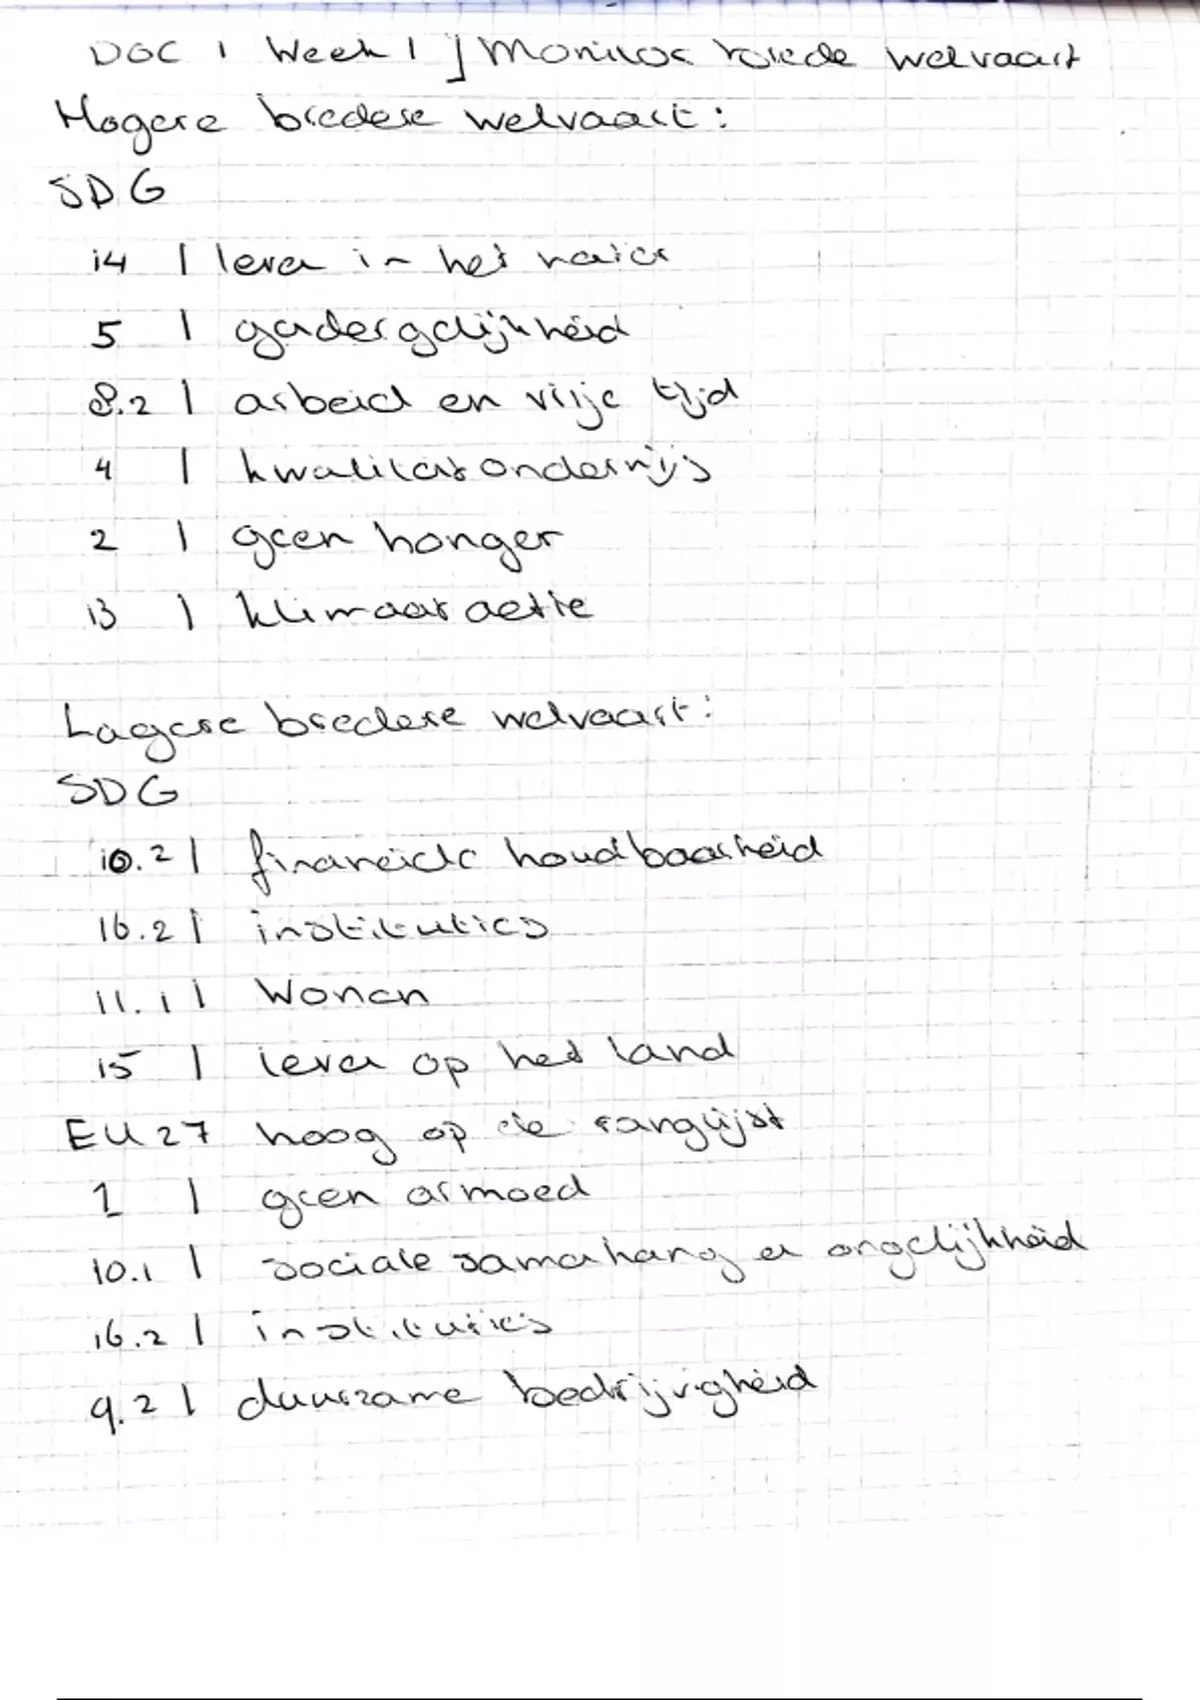 DOC 1 Week 1 ] Monitor brede welvaart
Hogere bredere welvaart:
SDG
14 | leven in het water
5 | gendergelijkheid
8.2 | arbeid en vrije tijd
4 | kwaliteitsonderwijs
2 | geen honger
13 | klimaatactie
Lagere bredere welvaart:
SDG
10.2 | financiele houdbaarheid
16.2 | instituties
11.1 | Wonen
15 | leven op het land
EU27 hoog op de ranglijst
1 | geen armoed
10.1 | sociale samenhang en ongelijkheid
16.2 | instituties
9.2 | duurzame bedrijvigheid